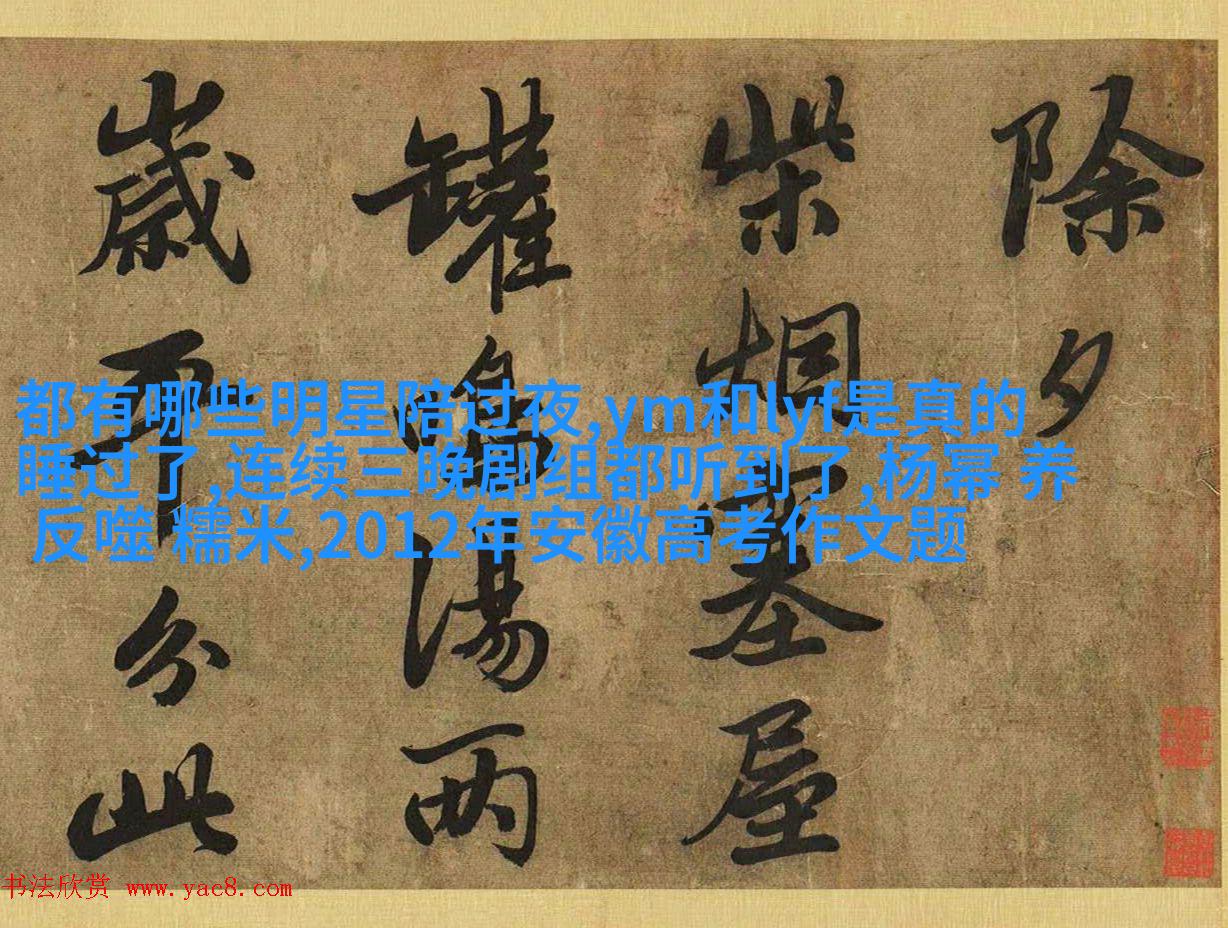 除夕
柴烟塞屋
罐鳴湯兩
歲平分此
都有哪些明星陪过夜,ym和lyf是真的
睡过了,连续三晚剧组都听到了,杨幂 养
反噬 糯米,2012年安徽高考作文题
书法欣赏 www.yac8.com